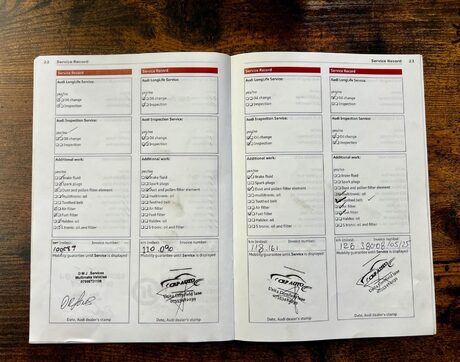 22 Service Record
Service Record
Audi LongLife Service:
yes/no
Oil change
Inspection
Audi Inspection Service:
yes/no
Oil change
Inspection
Additional work:
yes/no
Brake fluid
Spark plugs
Dust and pollen filter element
multitronic: oil
Toothed belt
Air filter
Fuel filter
Haldex: oil
S tronic: oil and filter
km (miles): Invoice number:
Mobility guarantee until Service is displayed
D.M.J Services
Date, Audi dealer's stamp
Service Record
Audi LongLife Service:
yes/no
Oil change
Inspection
Audi Inspection Service:
yes/no
Oil change
Inspection
Additional work:
yes/no
Brake fluid
Spark plugs
Dust and pollen filter element
multitronic: oil
Toothed belt
Air filter
Fuel filter
Haldex: oil
S tronic: oil and filter
km (miles): Invoice number:
110 090
Mobility guarantee until Service is displayed
Date, Audi dealer's stamp
Service Record 23
Service Record
Audi LongLife Service:
yes/no
Oil change
Inspection
Audi Inspection Service:
yes/no
Oil change
Inspection
Additional work:
yes/no
Brake fluid
Spark plugs
Dust and pollen filter element
multitronic: oil
Toothed belt
Air filter
Fuel filter
Haldex: oil
S tronic: oil and filter
km (miles): Invoice number:
118.161
Mobility guarantee until Service is displayed
Date, Audi dealer's stamp
Service Record
Audi LongLife Service:
yes/no
Oil change
Inspection
Audi Inspection Service:
yes/no
Oil change
Inspection
Additional work:
yes/no
Brake fluid
Spark plugs
Dust and pollen filter element
multitronic: oil
Toothed belt
Air filter
Fuel filter
Haldex: oil
S tronic: oil and filter
km (miles): Invoice number:
Mobility guarantee until Service is displayed
Date, Audi dealer's stamp